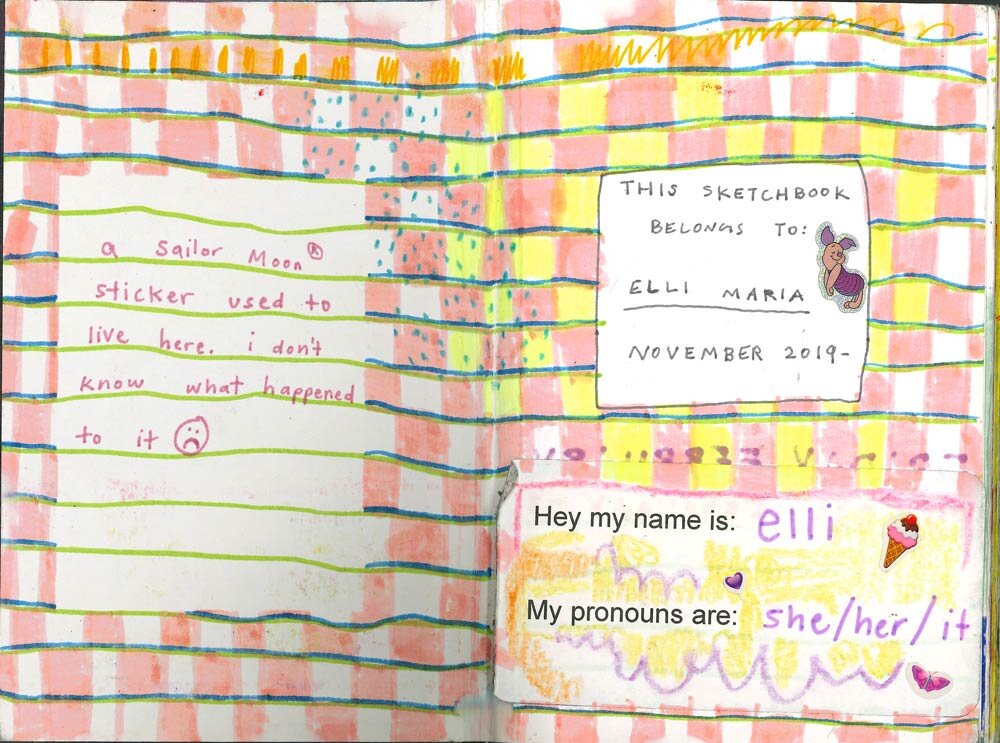 a Sailor Moon®
sticker used to
live here. i don't
know what happened
to it
THIS SKETCHBOOK
BELONGS TO:
ELLI MARIA
NOVEMBER 2019-
Hey my name is: elli
My pronouns are: she/her/it